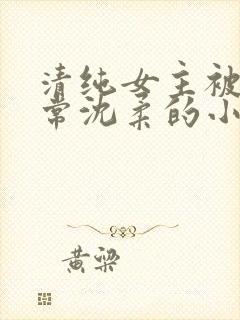 清纯女主被
常沈柔的小
黄梁